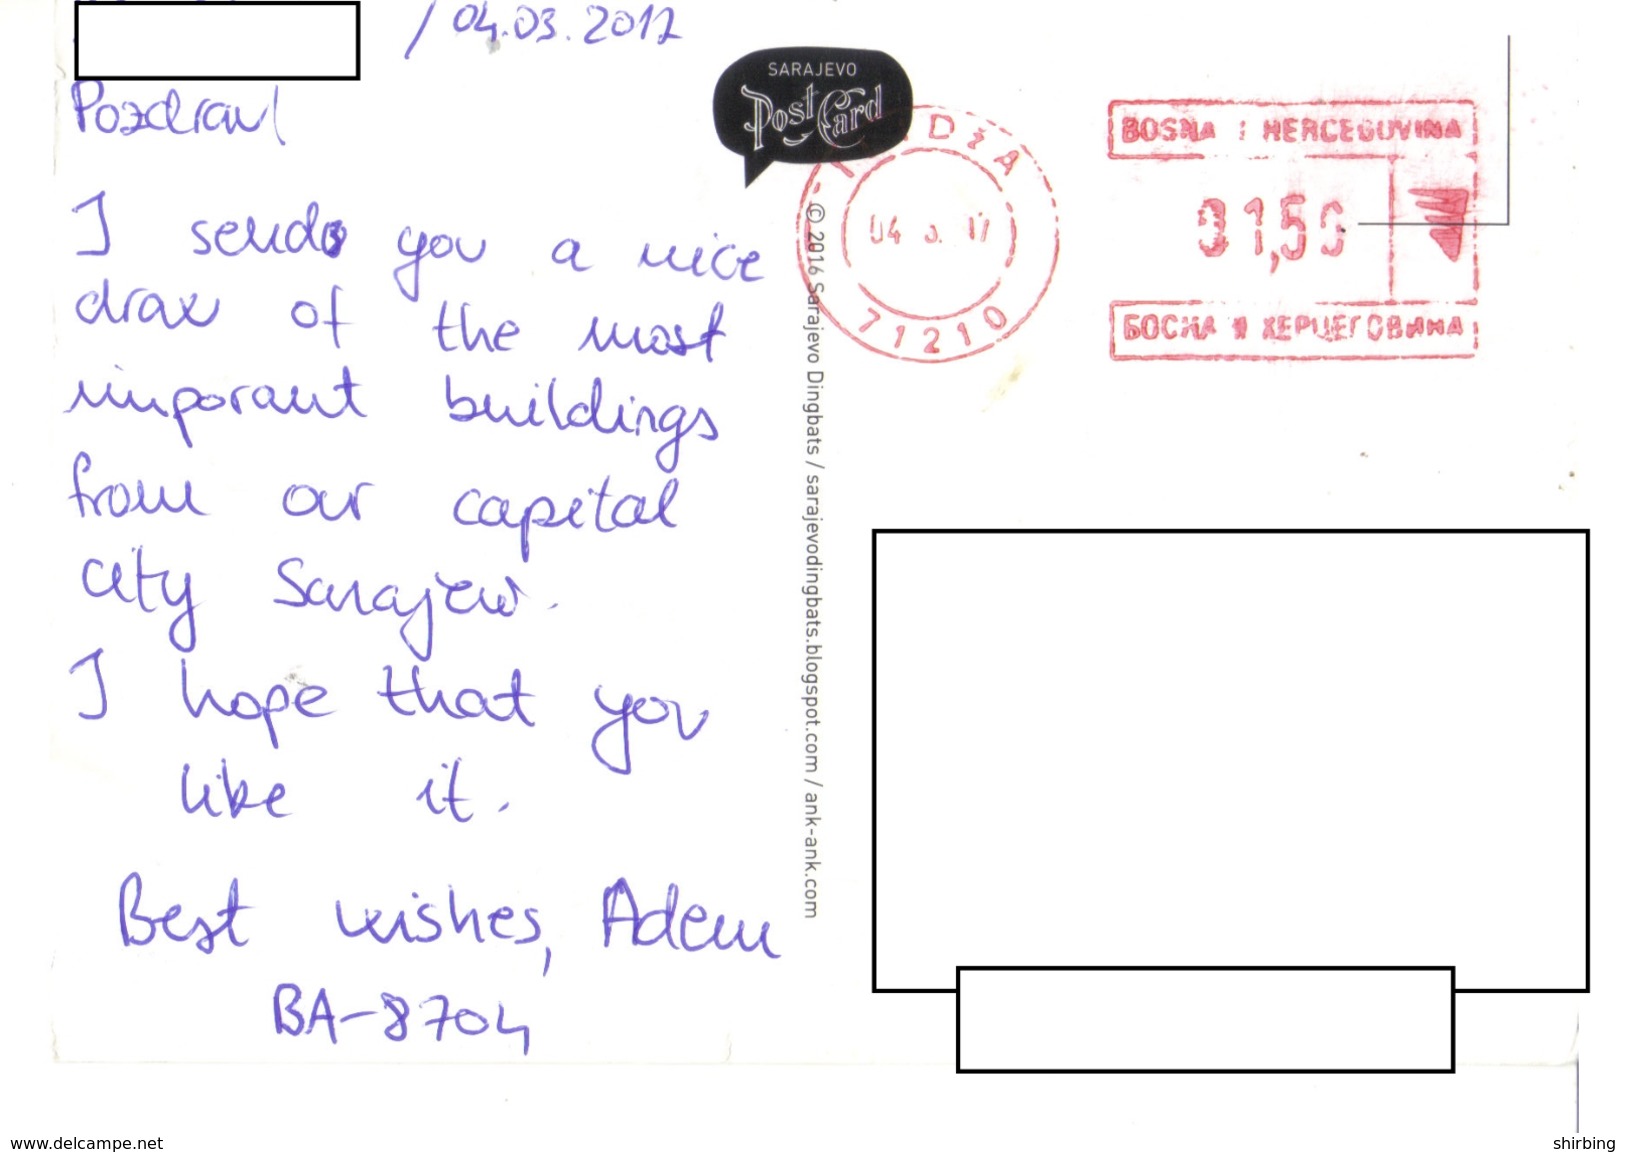 / 04.03.2017
Pozdrav!
I sends you a nice
draw of the most
imporant buildings
from our capital
city Sarajevo.
I hope that you
like it.
Best wishes, Adem
BA-8704
SARAJEVO
Post Card
© 2016 Sarajevo Dingbats / sarajevodingbats.blogspot.com / ank-ank.com
DŽA
71210
BOSNA I HERCEGOVINA
01,50
БОСНА И ХЕРЦЕГОВИНА
www.delcampe.net
shirbing